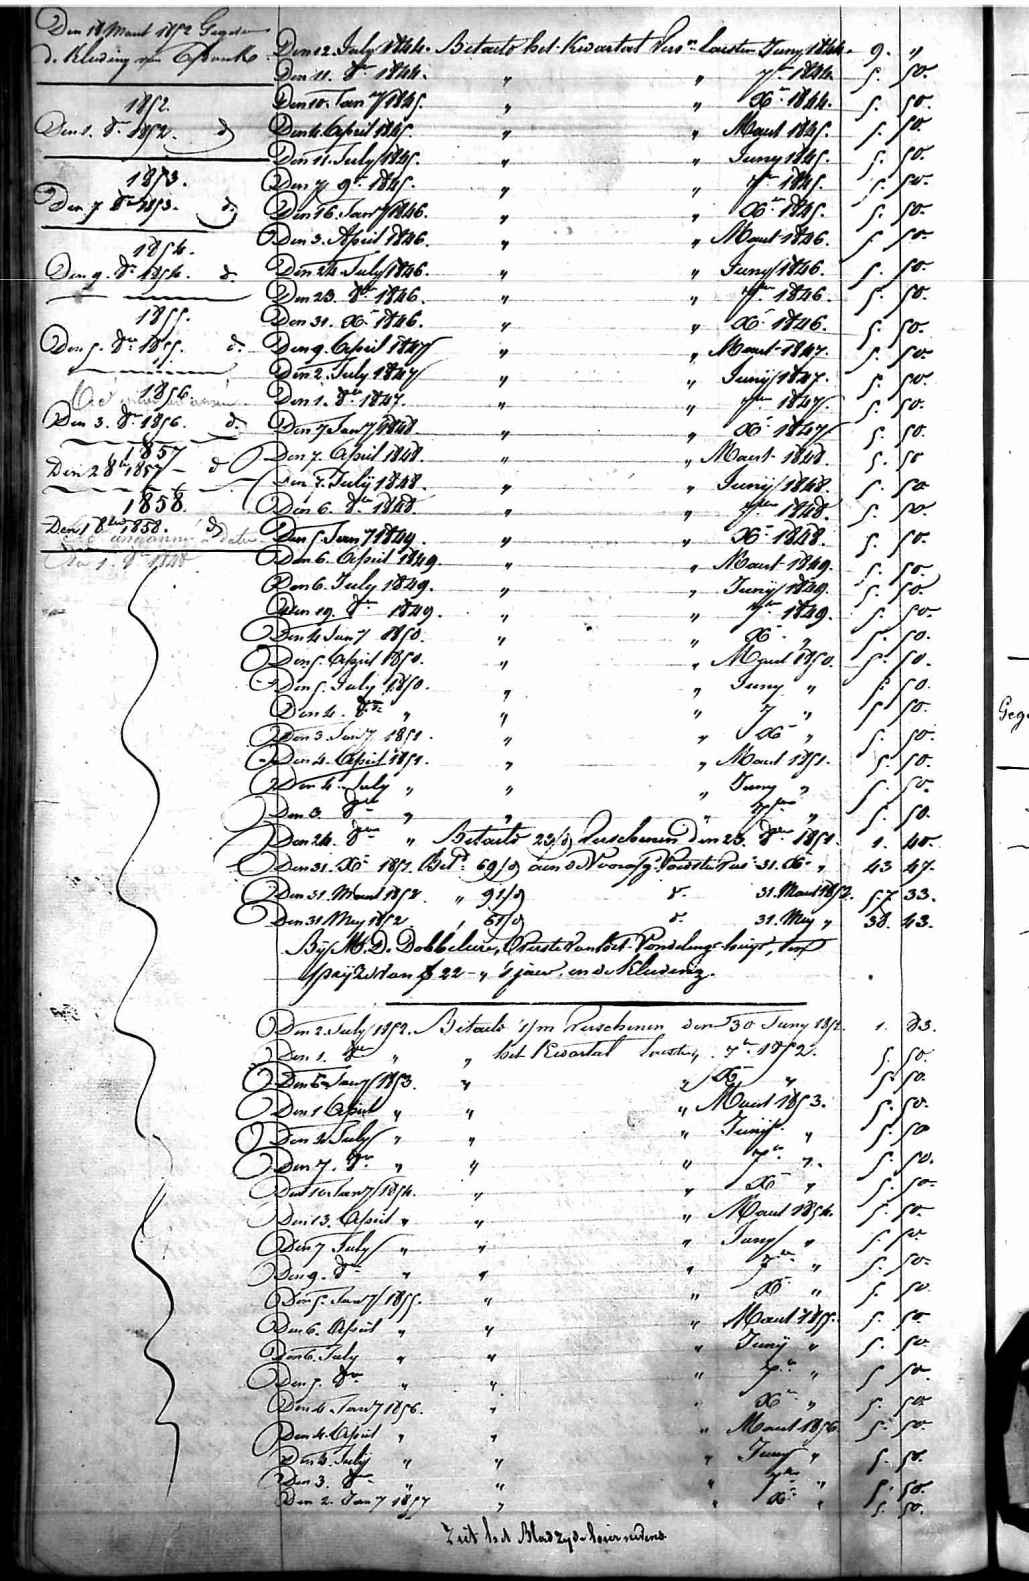 Den 18 Maart 1852 Gegeven
de Kleding
1852.
Den 1. 8.er 1852. do
1853.
Den 7 8.er 1853. do
1854.
Den 9. 8.er 1854. do
1855.
Den 5. 8.er 1855. do
1856.
Den 3. 8.er 1856. do
1857
Den 2 8.er 1857 – do
1858.
Den 1 8ber 1858. do
Den 12 July 1844. Betaelt het Kwartael Vers.n laesten Juny 1844. 9. "
Den 11. 8.er 1844. " " 7.er 1844. 5. 50.
Den 10. Jan.y 1845. " " X.er 1844. 5. 50.
Den 4 April 1845. " " Maart 1845. 5. 50.
Den 11. July 1845. " " Juny 1845. 5. 50.
Den 7 9.er 1845. " " 7.er 1845. 5. 50.
Den 16. Jan.y 1846. " " X.er 1845. 5. 50.
Den 3. April 1846. " " Maart 1846. 5. 50.
Den 24 July 1846. " " Juny 1846. 5. 50.
Den 23. 8.er 1846. " " 7.er 1846. 5. 50.
Den 31. X.er 1846. " " X.er 1846. 5. 50.
Den 9. April 1847 " " Maart 1847. 5. 50.
Den 2. July 1847 " " Junij 1847. 5. 50.
Den 1. 8.er 1847. " " 7.er 1847. 5. 50.
Den 7 Jan.y 1848. " " X.er 1847 5. 50.
Den 7. April 1848. " " Maart 1848. 5. 50
Den 7. Julij 1848. " " Junij 1848. 5. 50
Den 6. 8.er 1848 " " 7.er 1848. 5. 50.
Den 5 Jan.y 1849. " " X.er 1848. 5. 50.
Den 6. April 1849. " " Maart 1849. 5. 50.
Den 6. July 1849. " " Junij 1849. 5. 50.
Den 19. 8.er 1849. " " 7.er 1849. 5. 50.
Den 4 Jan.y 1850. " " X.er " 5. 50.
Den 5. April 1850. " " Maart 1850. 5. 50.
Den 5. July 1850. " " Juny " 5. 50.
Den 4. 8.er " " " 7 " 5. 50.
Den 3. Jan.y 1851. " " X.er " 5. 50.
Den 4. April 1851. " " Maart 1851. 5. 50.
Den 4. July " " " Juny " 5. 50.
Den 3. 8.er " " " 7.er " 5. 50.
Den 24. 8.er " Betaelt 23/d Verschenen den 23. 8.er 1851. 1. 40.
Den 31. X.er 1851. Bet.d 69/d aen 31. X.er " 43 47.
Den 31. Maart 1852 " 91/d d.o 31. Maart 1852. 57 33.
Den 31 Mey 1852 " 61/d d.o 31. Mey " 38. 43.
Bij M. D. Dobbelaere, Overste van het Vondelings-huys, ten
prijze van f 22 – " 's jaer, en de Kleeding.
Den 2. July 1852. Betaelt 1/m Verschenen den 30 Juny 1852. 1. 83.
Den 1. 8.er " " het Kwartael laesten " 7.er 1852. 5. 50.
Den 6 Jan.y 1853. " " X.er " 5. 50.
Den 1 April " " " Maart 1853. 5. 50.
Den 2 July " " " Junij " 5. 50
Den 7. 8.er " " " 7.er " 5. 50.
Den 10 Jan.y 1854. " " X.er " 5. 50.
Den 13. April " " " Maart 1854. 5. 50.
Den 7 July " " " Juny " 5. 50
Den 9. 8.er " " " 7.er " 5. 50.
Den 5. Jan.y 1855. " " X.er " 5. 50
Den 6. April " " " Maart 1855. 5. 50
Den 6. July " " " Junij " 5. 50.
Den 5. 8.er " " " 7.er " 5 50.
Den 4 Jan.y 1856. " " X.er " 5. 50.
Den 4. April " " " Maart 1856 5. 50.
Den 4. July " " " Juny " 5. 50.
Den 3. 8.er " " " 7.er " 5. 50.
Den 2. Jan.y 1857 " " X.er " 5. 50.
Ziet het Bladzyde hier nevens
Gege